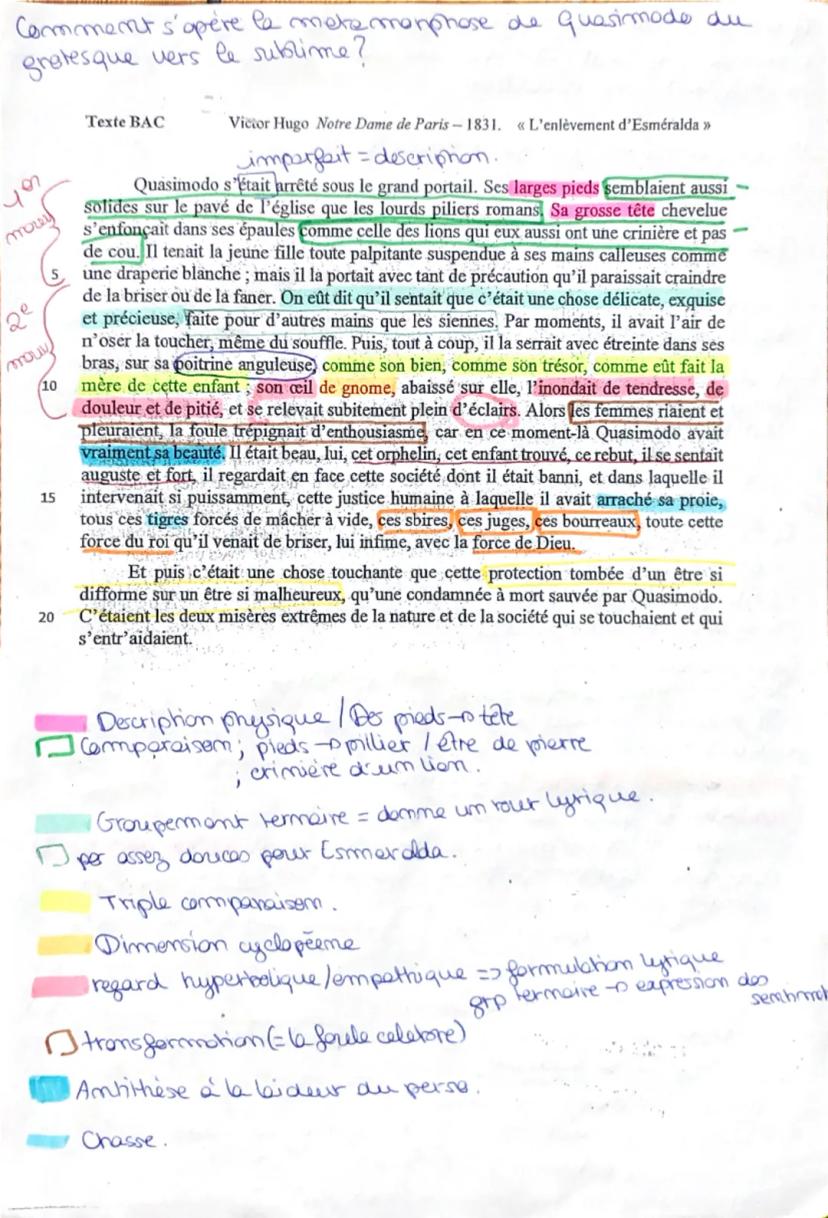 Comment s'opère la metamorphose de Quasimodo du
grotesque vers le sublime?
Texte BAC Victor Hugo Notre Dame de Paris – 1831. « L'enlèvement d'Esméralda »
imparfait = description.
1er
mouv
Quasimodo s'était arrêté sous le grand portail. Ses larges pieds semblaient aussi
solides sur le pavé de l'église que les lourds piliers romans. Sa grosse tête chevelue
s'enfonçait dans ses épaules comme celle des lions qui eux aussi ont une crinière et pas
de cou. Il tenait la jeune fille toute palpitante suspendue à ses mains calleuses comme
5 une draperie blanche ; mais il la portait avec tant de précaution qu'il paraissait craindre
2e
mouv
de la briser ou de la faner. On eût dit qu'il sentait que c'était une chose délicate, exquise
et précieuse, faite pour d'autres mains que les siennes. Par moments, il avait l'air de
n'oser la toucher, même du souffle. Puis, tout à coup, il la serrait avec étreinte dans ses
bras, sur sa poitrine anguleuse, comme son bien, comme son trésor, comme eût fait la
10 mère de cette enfant ; son œil de gnome, abaissé sur elle, l'inondait de tendresse, de
douleur et de pitié, et se relevait subitement plein d'éclairs. Alors les femmes riaient et
pleuraient, la foule trépignait d'enthousiasme, car en ce moment-là Quasimodo avait
vraiment sa beauté. Il était beau, lui, cet orphelin, cet enfant trouvé, ce rebut, il se sentait
auguste et fort, il regardait en face cette société dont il était banni, et dans laquelle il
15 intervenait si puissamment, cette justice humaine à laquelle il avait arraché sa proie,
tous ces tigres forcés de mâcher à vide, ces sbires, ces juges, ces bourreaux, toute cette
force du roi qu'il venait de briser, lui infime, avec la force de Dieu.
Et puis c'était une chose touchante que cette protection tombée d'un être si
difforme sur un être si malheureux, qu'une condamnée à mort sauvée par Quasimodo.
20 C'étaient les deux misères extrêmes de la nature et de la société qui se touchaient et qui
s'entr'aidaient.
Description physique / Des pieds → tête
Comparaison ; pieds → pillier / être de pierre
; crinière d'un lion.
Groupement ternaire = donne un tour lyrique.
pas assez douces pour Esmeralda.
Triple comparaison.
Dimension cyclopéenne
regard hyperbolique/empathique => formulation lyrique
grp ternaire → expression des
sentiment
transformation (= la foule celebre)
Antithèse à la laideur du perso.
Chasse.